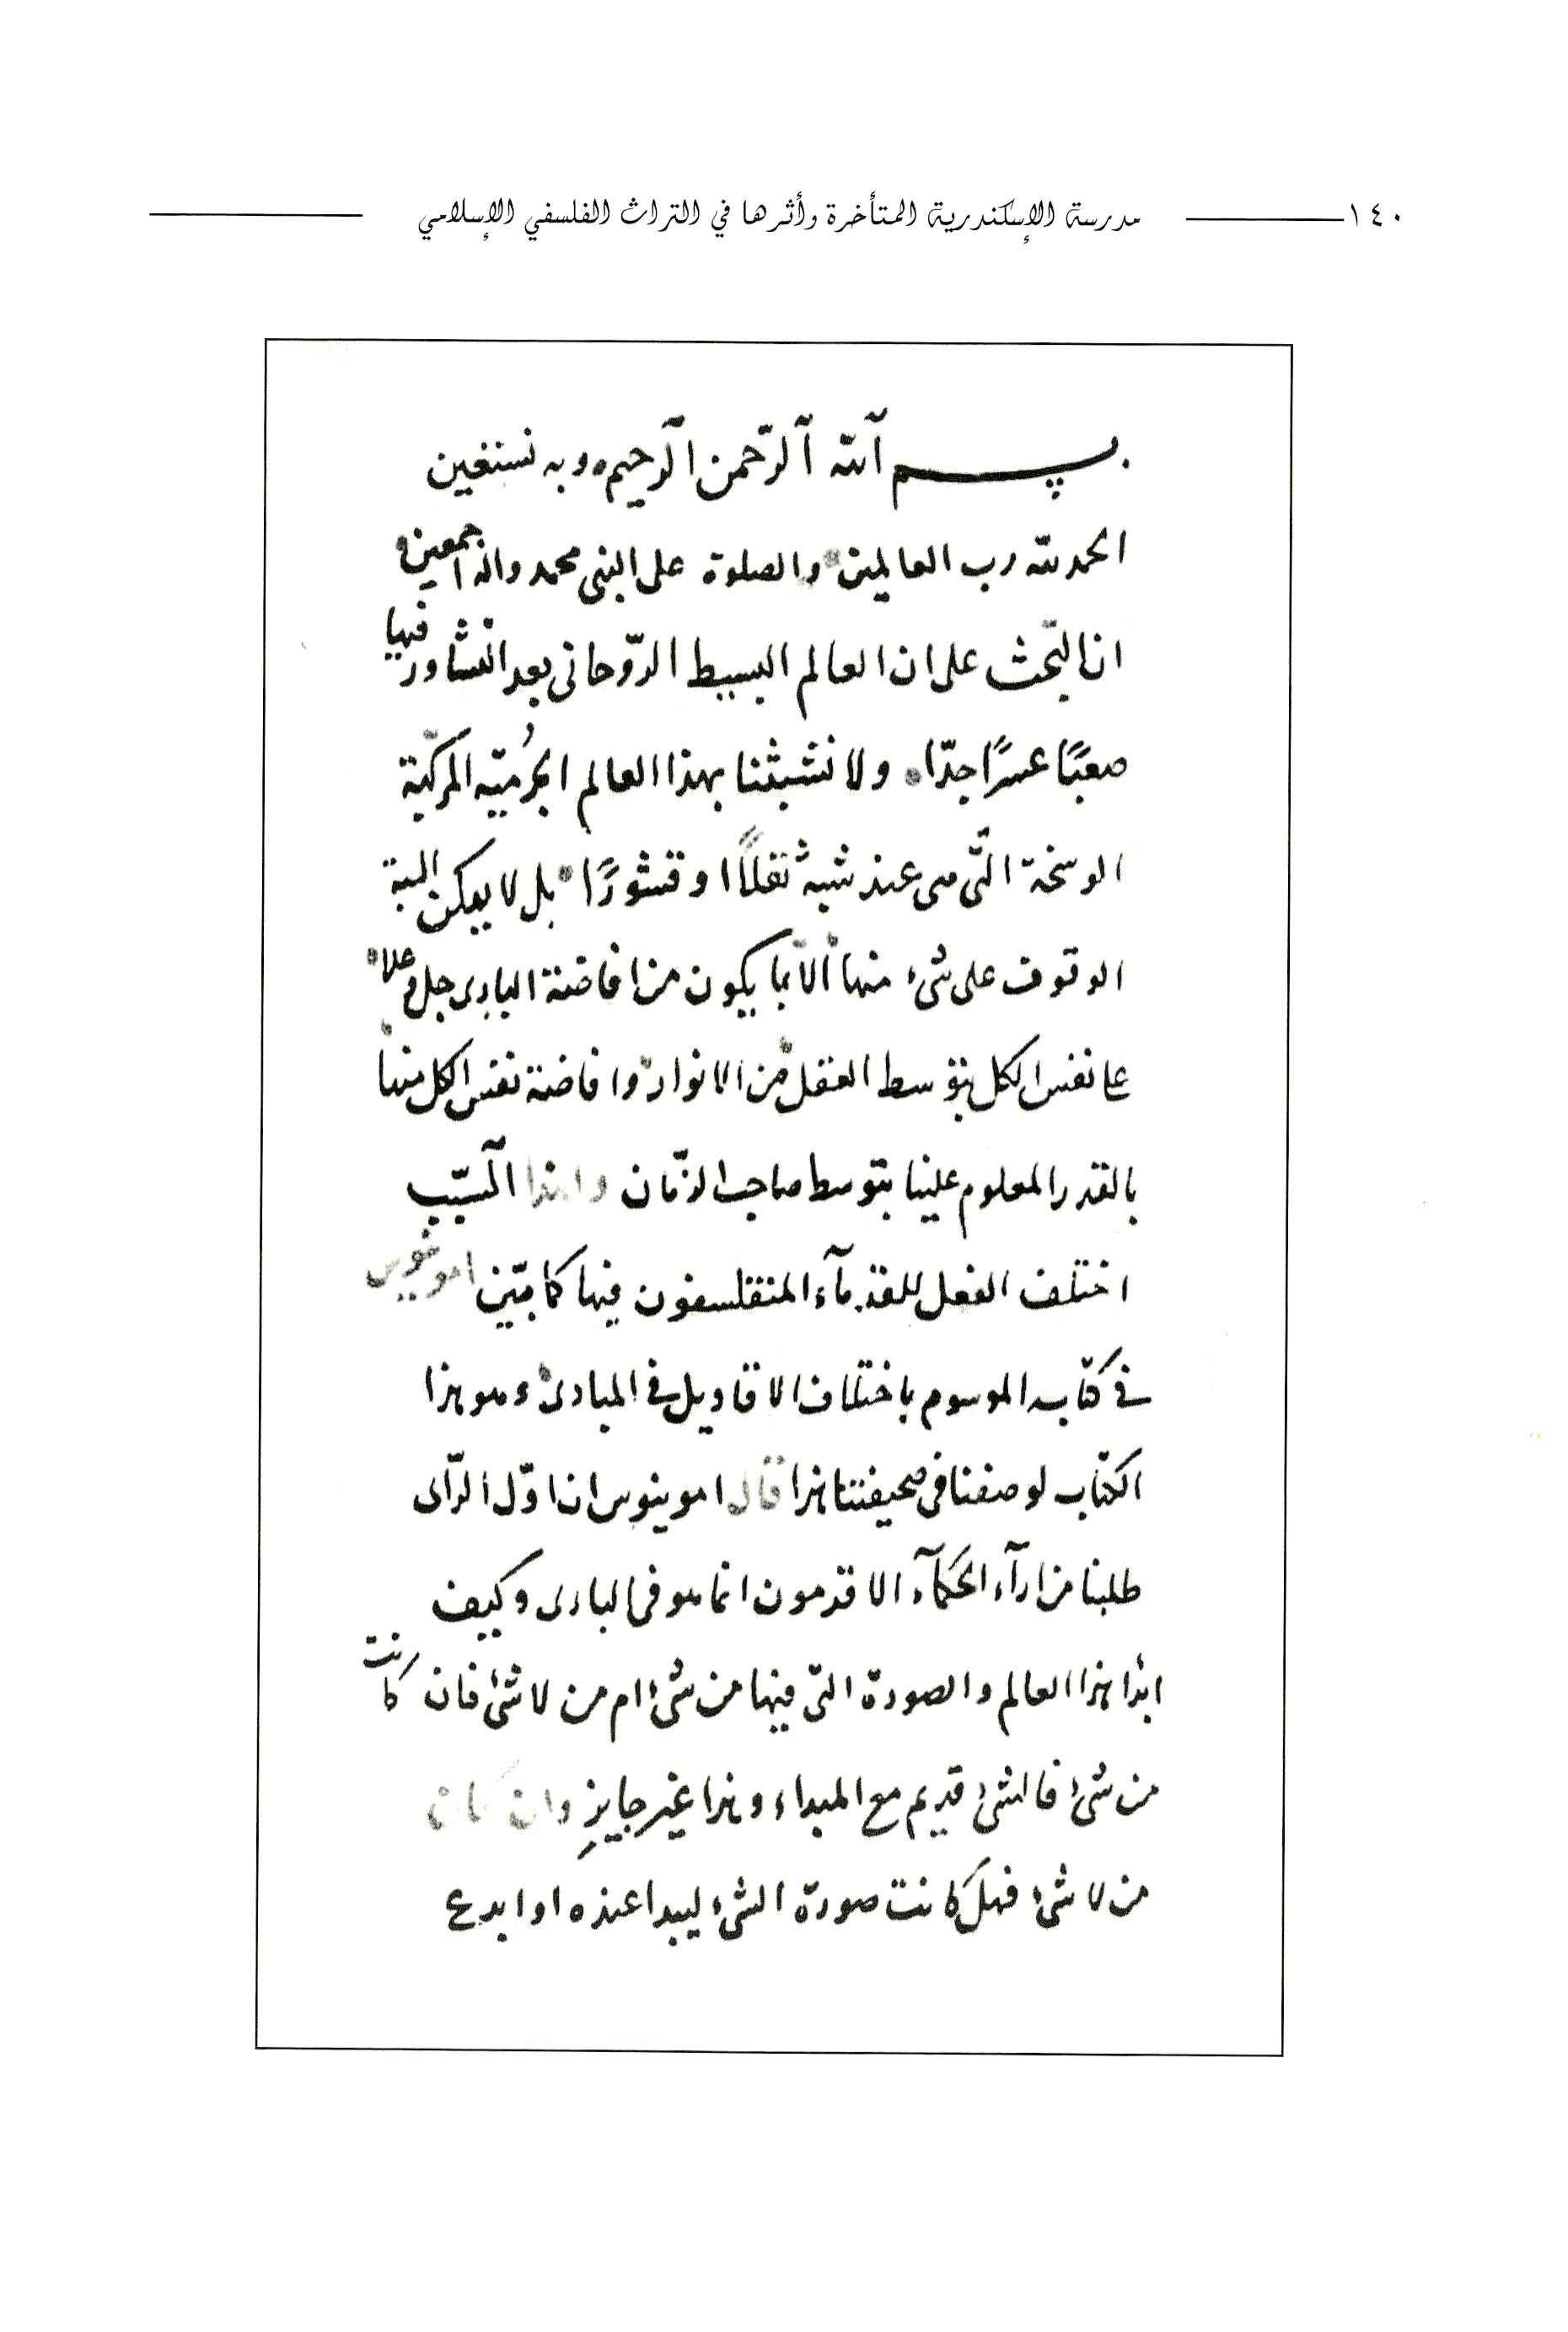 ١٤٠ مدرسة الإسكندرية المتأخرة وأثرها في التراث الفلسفي الإسلامي
بسم الله الرّحمن الرّحيم وبه نستعين
الحمد لله رب العالمين والصلوة على النبى محمد واله اجمعين
ان البحث على ان العالم البسيط الرّوحانى بعد التشاور فيها
صعبًا عسرًا جدّا ولا نشبثنا بهذا العالم الجُرميّه المركّبة
الوسخة الّتى هى عند شبه ثقلًا او قشورًا بل لا يمكن البتة
الوقوف على شئ منها الّا بما يكون من افاضة البارى جل وعلا
عا نفس الكل بتوسط العقل من الانوار وافاضة نفس الكل منها
بالقدر المعلوم علينا بتوسط صاحب الزّمان ولهذا السّبب
اختلف الفعل للقدمآء المتفلسفون فيها كما بيّن امونيوس
فى كتابه الموسوم باختلاف الاقاويل فى المبادئ وهو هذا
الكتاب لو صنفنا فى صحيفتنا هذا قال امونيوس ان اوّل الرّاى
طلبنا من ارآء الحكمآء الاقدمون انما هو فى البارى وكيف
ابدا هذا العالم والصورة التى فيها من شئ ام من لا شئ فان كانت
من شئ فالشئ قديم مع المبداء وهذا غير جايز وان كان
من لا شئ فهل كانت صورة الشئ ليبدا عنده او ابدع